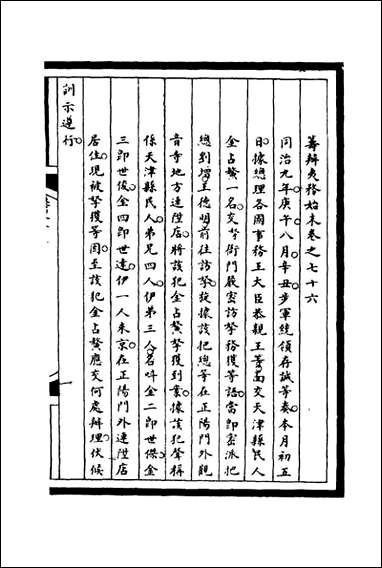 籌辦夷務始末卷之七十六
同治九年庚午八月辛丑步軍統領存誠等奏本月初五
日據總理各國事務王大臣恭親王等面交天津縣民人
金占鰲一名交拏衙門嚴密訪拏務獲等語當即密派把
總劉增王德明前往訪拏旋據該把總等在正陽門外觀
音寺地方連陞店將該犯金占鰲拏獲到案據該犯聲稱
係天津縣民人弟兄四人伊弟三人名叫金二即世傑金
三即世俊金四即世達伊一人來京在正陽門外連陞店
居住現被拏獲等因至該犯金占鰲應交何處辦理伏候
訓示遵行
一